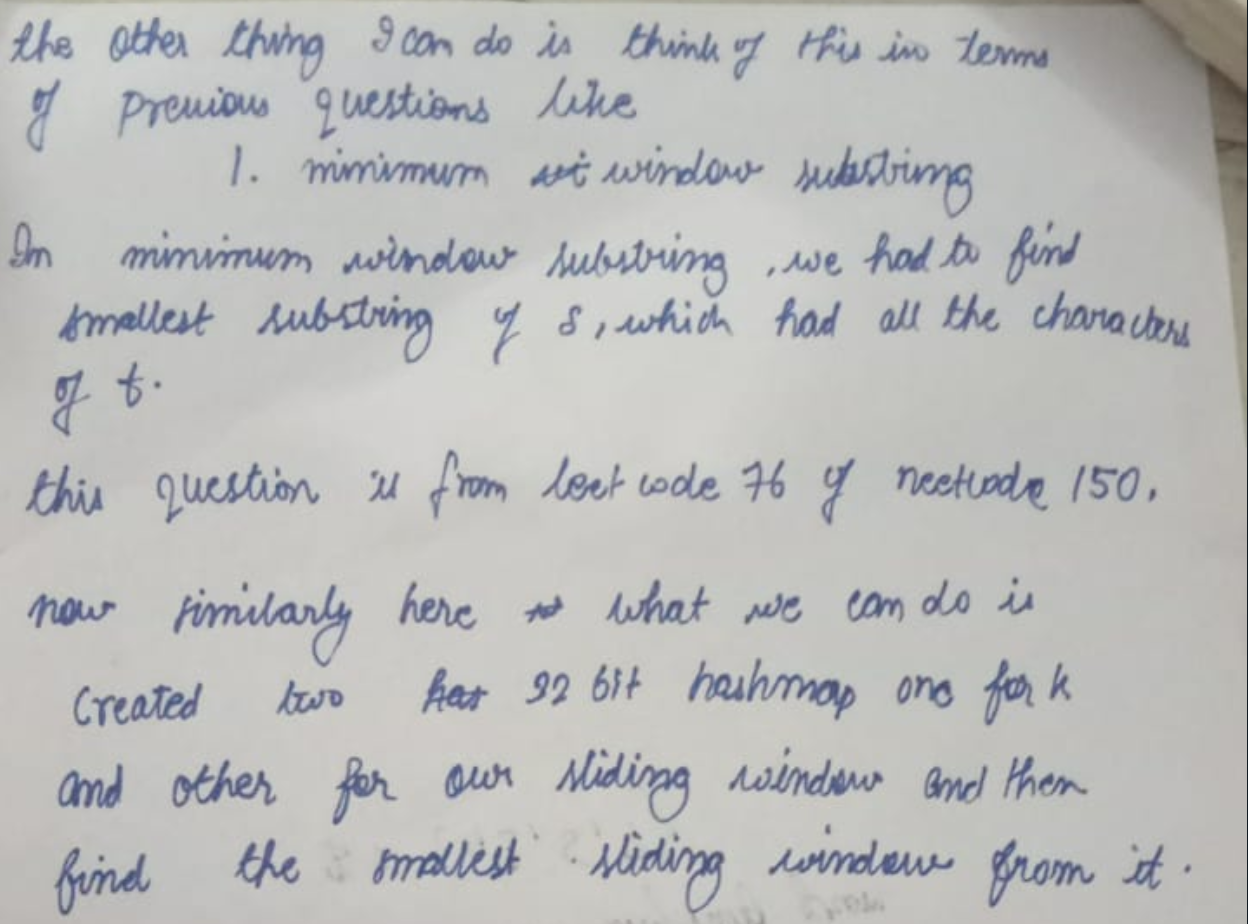 the other thing I can do is think of this in terms
of previous questions like
1. minimum window substring
In minimum window substring, we had to find
smallest substring of s, which had all the characters
of t.
this question is from leet code 76 of neetcode 150.
now similarly here what we can do is
Created two 32 bit hashmap one for k
and other for our sliding window and then
find the smallest sliding window from it.